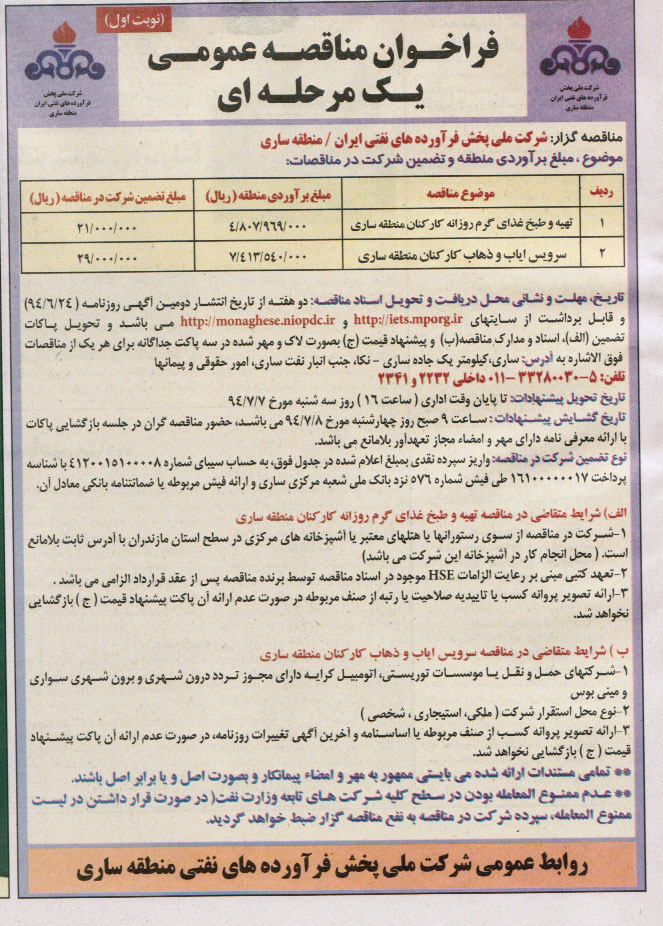 (نوبت اول)
فراخوان مناقصه عمومی
یک مرحله ای
شرکت ملی پخش
فرآورده های نفتی ایران
منطقه ساری
شرکت ملی پخش
فرآورده های نفتی ایران
منطقه ساری
مناقصه گزار: شرکت ملی پخش فرآورده های نفتی ایران / منطقه ساری
موضوع ، مبلغ برآوردی منطقه و تضمین شرکت در مناقصات:
ردیف موضوع مناقصه مبلغ برآوردی منطقه ( ریال) مبلغ تضمین شرکت در مناقصه ( ریال)
۱ تهیه و طبخ غذای گرم روزانه کارکنان منطقه ساری ۴/۸۰۷/۹۶۹/۰۰۰ ۲۱/۰۰۰/۰۰۰
۲ سرویس ایاب و ذهاب کارکنان منطقه ساری ۷/۴۱۳/۵۴۰/۰۰۰ ۲۹/۰۰۰/۰۰۰
تاریخ، مهلت و نشانی محل دریافت و تحویل اسناد مناقصه: دو هفته از تاریخ انتشار دومین آگهی روزنامه ( ۹۴/۶/۲۴)
و قابل برداشت از سایتهای http://iets.mporg.ir و http://monaghese.niopdc.ir می باشد و تحویل پاکات
تضمین (الف)، اسناد و مدارک مناقصه(ب) و پیشنهاد قیمت (ج) بصورت لاک و مهر شده در سه پاکت جداگانه برای هر یک از مناقصات
فوق الاشاره به آدرس: ساری،کیلومتر یک جاده ساری - نکا، جنب انبار نفت ساری، امور حقوقی و پیمانها
تلفن: ۵-۳۳۲۸۰۰۳۰ -۰۱۱ داخلی ۲۲۳۲ و ۲۳۴۱
تاریخ تحویل پیشنهادات: تا پایان وقت اداری ( ساعت ۱۶ ) روز سه شنبه مورخ ۹۴/۷/۷
تاریخ گشایش پیشنهادات : ساعت ۹ صبح روز چهارشنبه مورخ ۹۴/۷/۸ می باشد، حضور مناقصه گران در جلسه بازگشایی پاکات
با ارائه معرفی نامه دارای مهر و امضاء مجاز تعهدآور بلامانع می باشد.
نوع تضمین شرکت در مناقصه: واریز سپرده نقدی بمبلغ اعلام شده در جدول فوق، به حساب سیبای شماره ۴۱۲۰۰۱۵۱۰۰۰۰۸ با شناسه
پرداخت ۱۶۱۰۰۰۰۰۰۱۷ طی فیش شماره ۵۷۶ نزد بانک ملی شعبه مرکزی ساری و ارائه فیش مربوطه یا ضمانتنامه بانکی معادل آن.
الف) شرایط متقاضی در مناقصه تهیه و طبخ غذای گرم روزانه کارکنان منطقه ساری
۱-شرکت در مناقصه از سوی رستورانها یا هتلهای معتبر یا آشپزخانه های مرکزی در سطح استان مازندران با آدرس ثابت بلامانع
است. ( محل انجام کار در آشپزخانه این شرکت می باشد)
۲-تعهد کتبی مبنی بر رعایت الزامات HSE موجود در اسناد مناقصه توسط برنده مناقصه پس از عقد قرارداد الزامی می باشد .
۳-ارائه تصویر پروانه کسب یا تاییدیه صلاحیت یا رتبه از صنف مربوطه در صورت عدم ارائه آن پاکت پیشنهاد قیمت ( ج ) بازگشایی
نخواهد شد.
ب ) شرایط متقاضی در مناقصه سرویس ایاب و ذهاب کارکنان منطقه ساری
۱-شرکتهای حمل و نقل یا موسسات توریستی، اتومبیل کرایه دارای مجوز تردد درون شهری و برون شهری سواری
و مینی بوس
۲-نوع محل استقرار شرکت ( ملکی، استیجاری ، شخصی )
۳-ارائه تصویر پروانه کسب از صنف مربوطه یا اساسنامه و آخرین آگهی تغییرات روزنامه، در صورت عدم ارائه آن پاکت پیشنهاد
قیمت ( ج ) بازگشایی نخواهد شد.
** تمامی مستندات ارائه شده می بایستی ممهور به مهر و امضاء پیمانکار و بصورت اصل و یا برابر اصل باشند.
** عدم ممنوع المعامله بودن در سطح کلیه شرکت های تابعه وزارت نفت( در صورت قرار داشتن در لیست
ممنوع المعامله، سپرده شرکت در مناقصه به نفع مناقصه گزار ضبط خواهد گردید.
روابط عمومی شرکت ملی پخش فرآورده های نفتی منطقه ساری